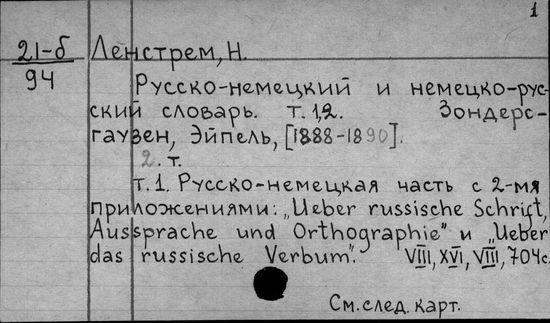 1
21-б
94
Ленстрем, Н.
Русско-немецкий и немецко-рус-
ский словарь. т. 1,2. Зондерс-
гаузен, Эйпель, [1888-1890].
2. т.
т. 1. Русско-немецкая часть с 2-мя
приложениями: „Ueber russische Schrift,
Aussprache und Orthographie" и „Ueber
das russische Verbum". VIII, XVI, VIII, 704с.
См. след. карт.